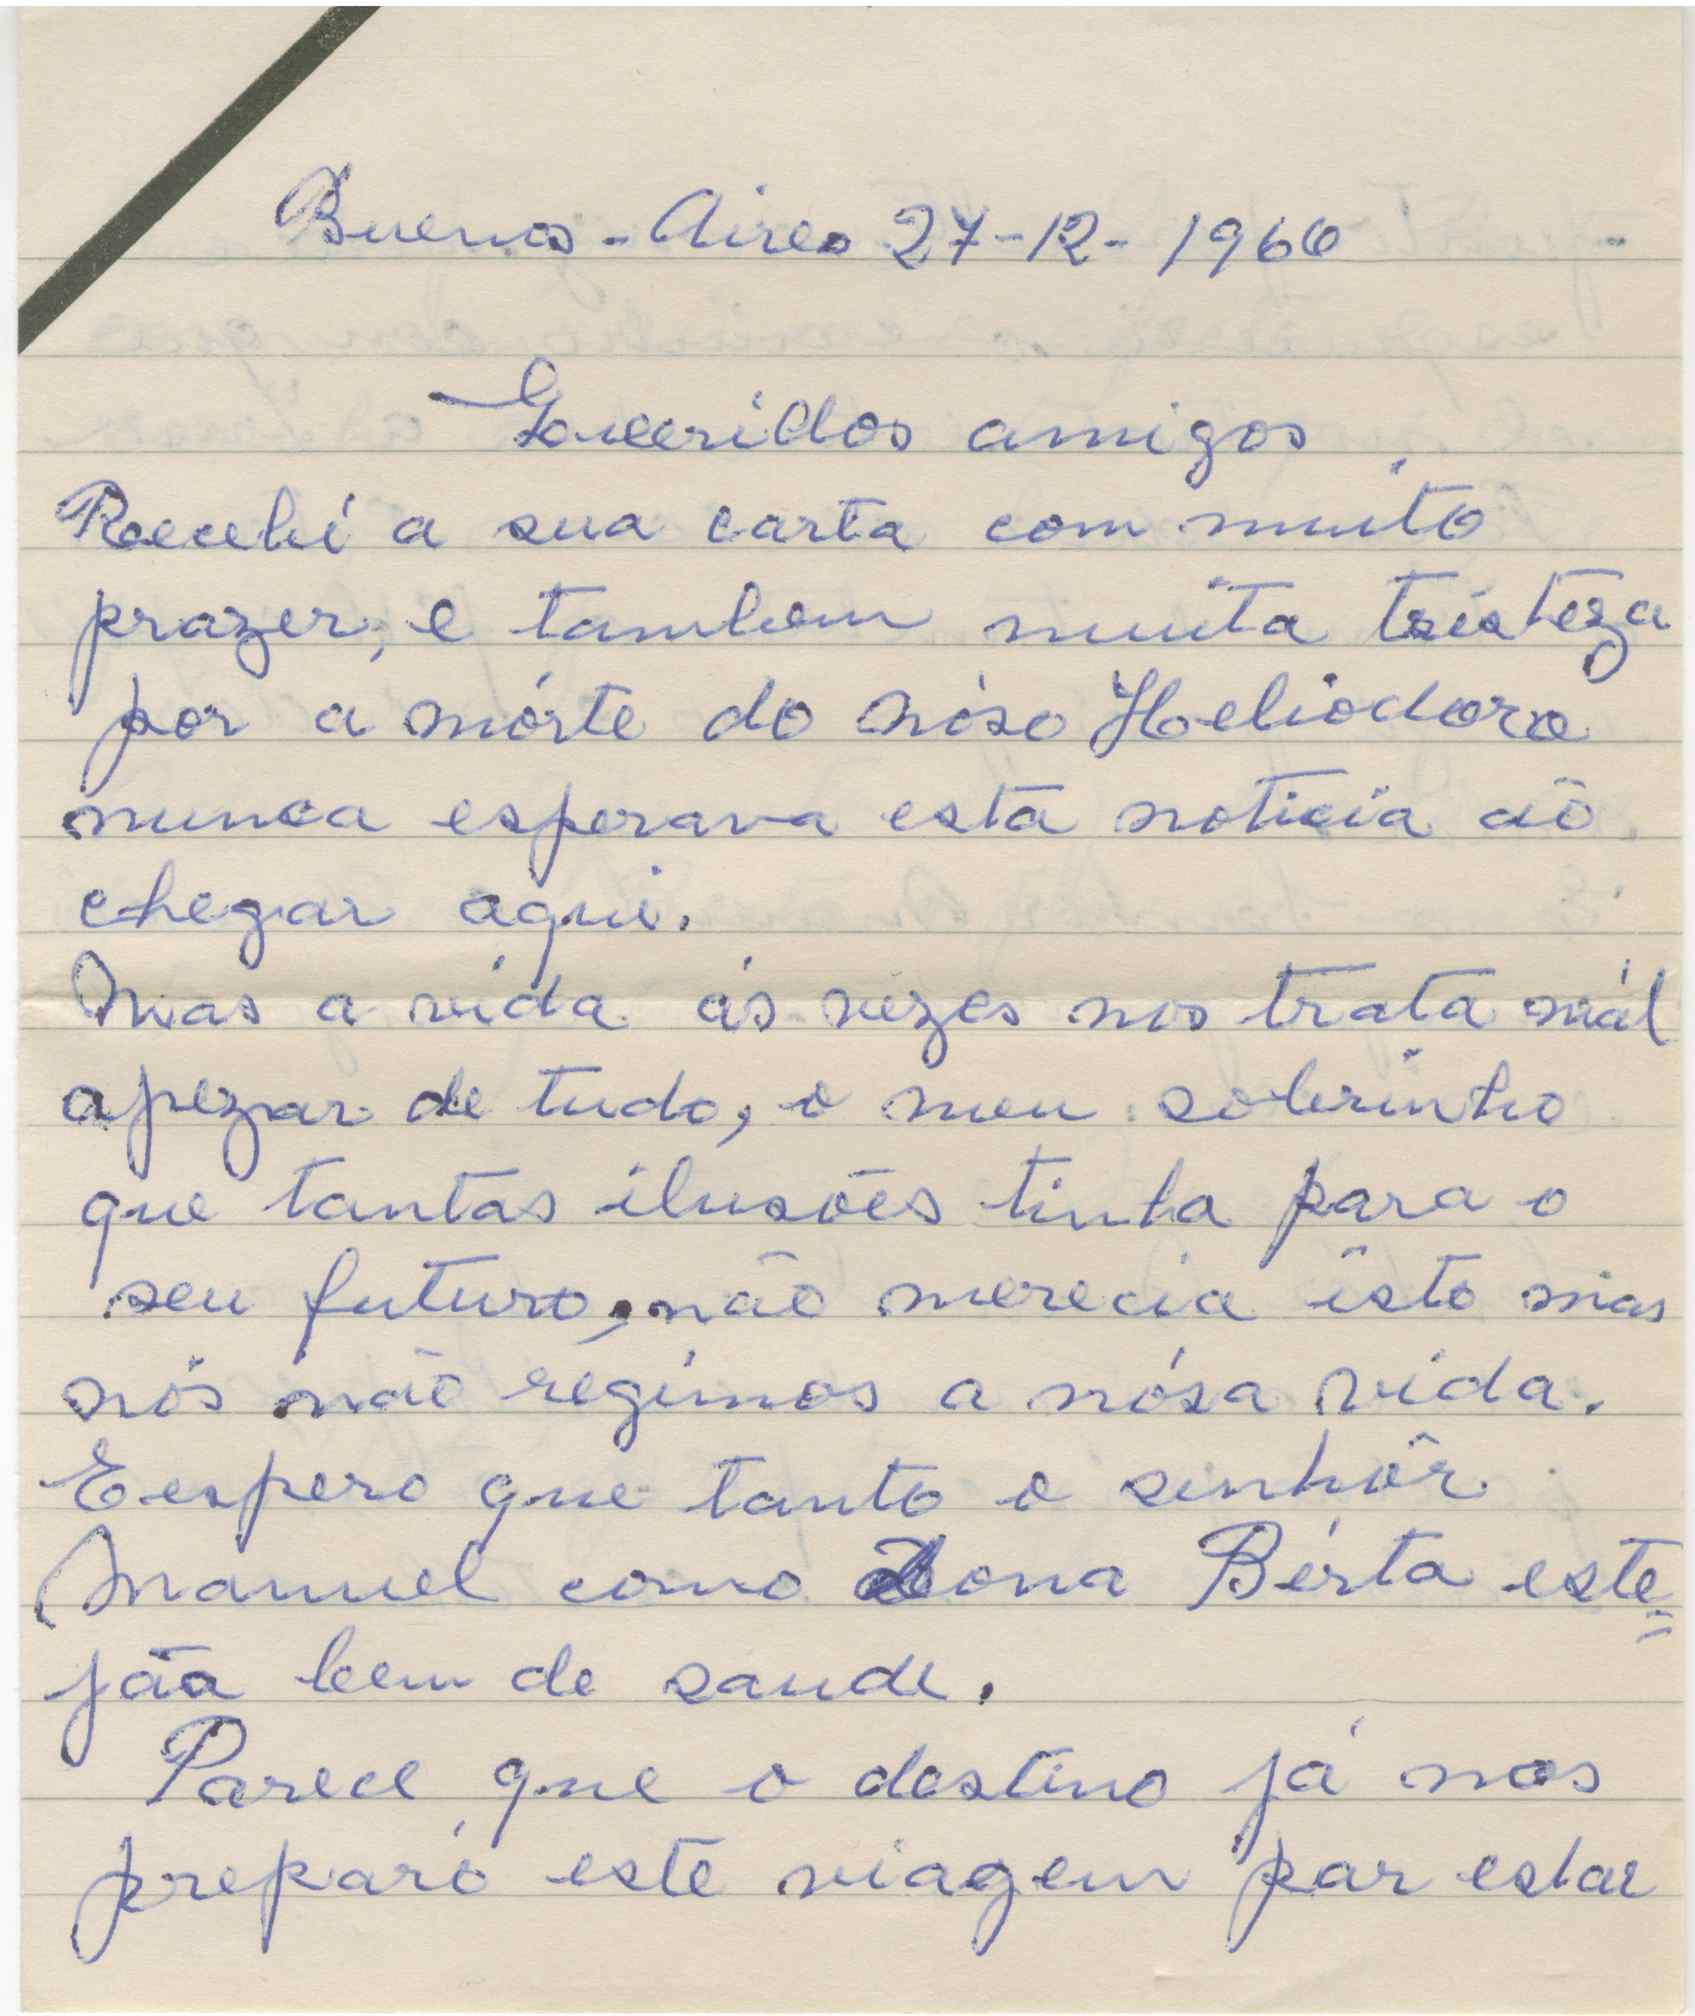 Buenos-Aires 27-12-1960
Queeridos amigos
Recebí a sua carta com muito
prazer, e tambem muita tristeza
por a mórte do nóso Heliodoro
nunca esperava esta noticia aõ
chegar aqui.
Mas a vida ás vezes nos trata mál
apezar de tudo, o meu sobrinho
que tantas ilusões tinha para o
seu futuro, não merecia isto mas
nós não regimos a nósa vida.
E espero que tanto o senhôr
Manuel como Dona Bérta este=
jãa bem de saude.
Parece que o destino já nos
preparó este viagem par estar